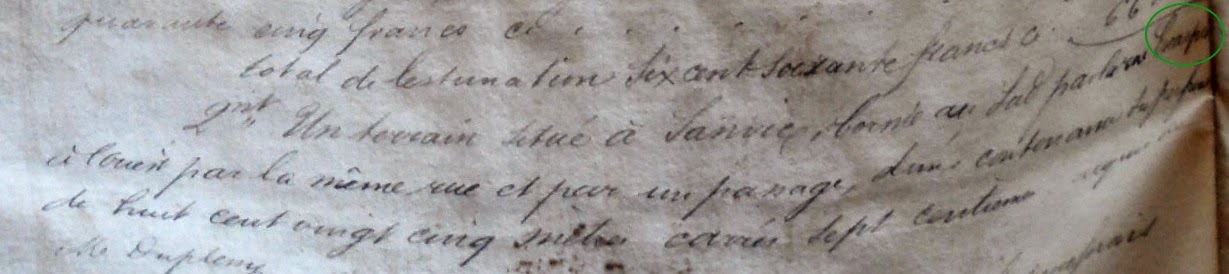 quarante cinq francs ci . . . .
total de l'estimation Six cent soixante francs ci . 66
2ent Un terrain situé à Sanvic, borné au Sud par la rue
à l'ouest par la même rue et par un passage, d'une contenance
de huit cent vingt cinq mètres carrés sept centième
Mr Dupleny